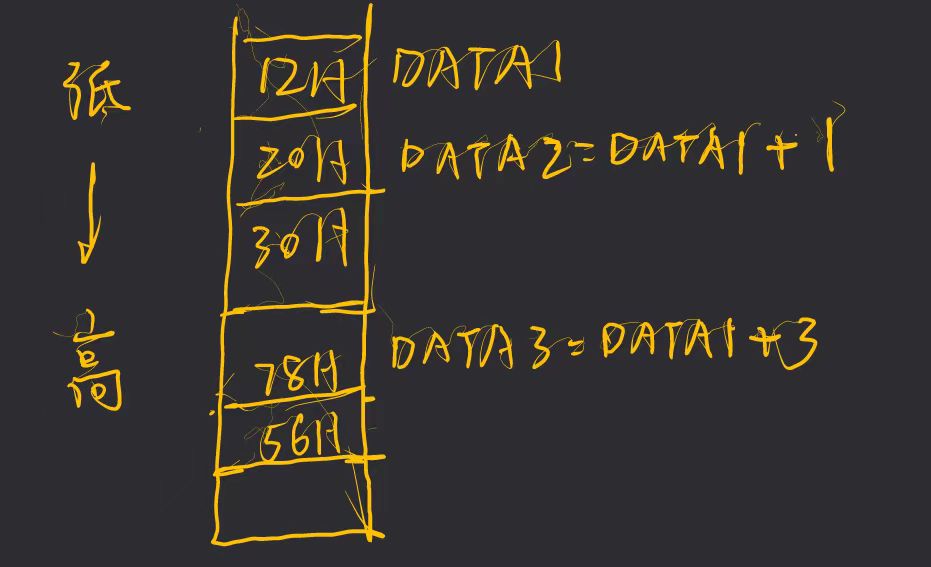 低
12H DATA1
20H DATA2=DATA1+1
30H
高
78H DATA3=DATA1+3
56H